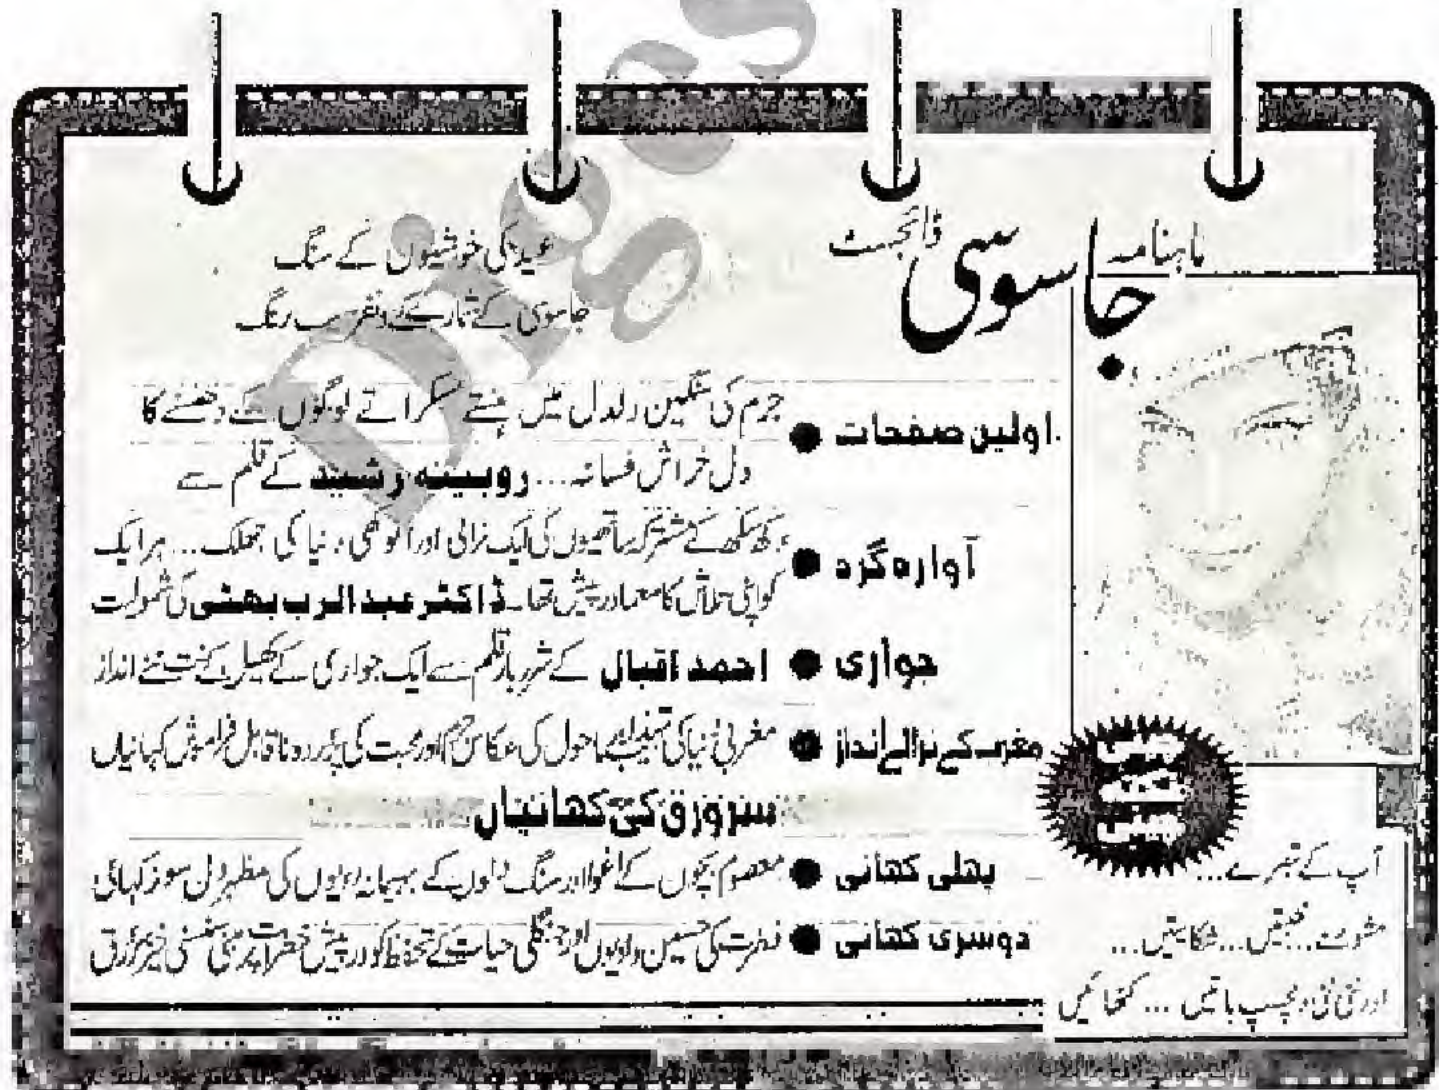 ماہنامہ جاسوسی ڈائجسٹ
عید کی خوشیوں کے سنگ
جاسوسی کے شمارے کے دلفریب رنگ
اولین صفحات ● جرم کی سنگین دلدل میں ہنستے مسکراتے لوگوں کے دھنسنے کا
دل خراش فسانہ... روبینہ رشید کے قلم سے
آوارہ گرد ● دکھ سکھ کے مشترکہ ساتھیوں کی ایک نرالی اور انوکھی دنیا کی جھلک... ہر ایک
کو اپنی تلاش کا معما درپیش تھا۔ ڈاکٹر عبدالرب بھٹی کی شمولیت
جواری ● احمد اقبال کے شرربار قلم سے ایک جواری کے کھیل کے نت نئے انداز
مغرب کے نرالے انداز ● مغربی دنیا کی تہذیب ماحول کی عکاس جرم اور محبت کی پردرد ناقابل فراموش کہانیاں
سرورق کی کہانیاں
پہلی کہانی ● معصوم بچوں کے اغوا اور سنگ دلوں کے بہیمانہ رویوں کی مظہر دل سوز کہانی
دوسری کہانی ● فطرت کی حسین وادیوں اور جنگلی حیات کے تحفظ کو درپیش خطرات پر مبنی سنسنی خیز
آپ کے تبصرے...
مشورے... شکایتیں...
اور نئی نئی دلچسپ باتیں... کتھائیں
Digest